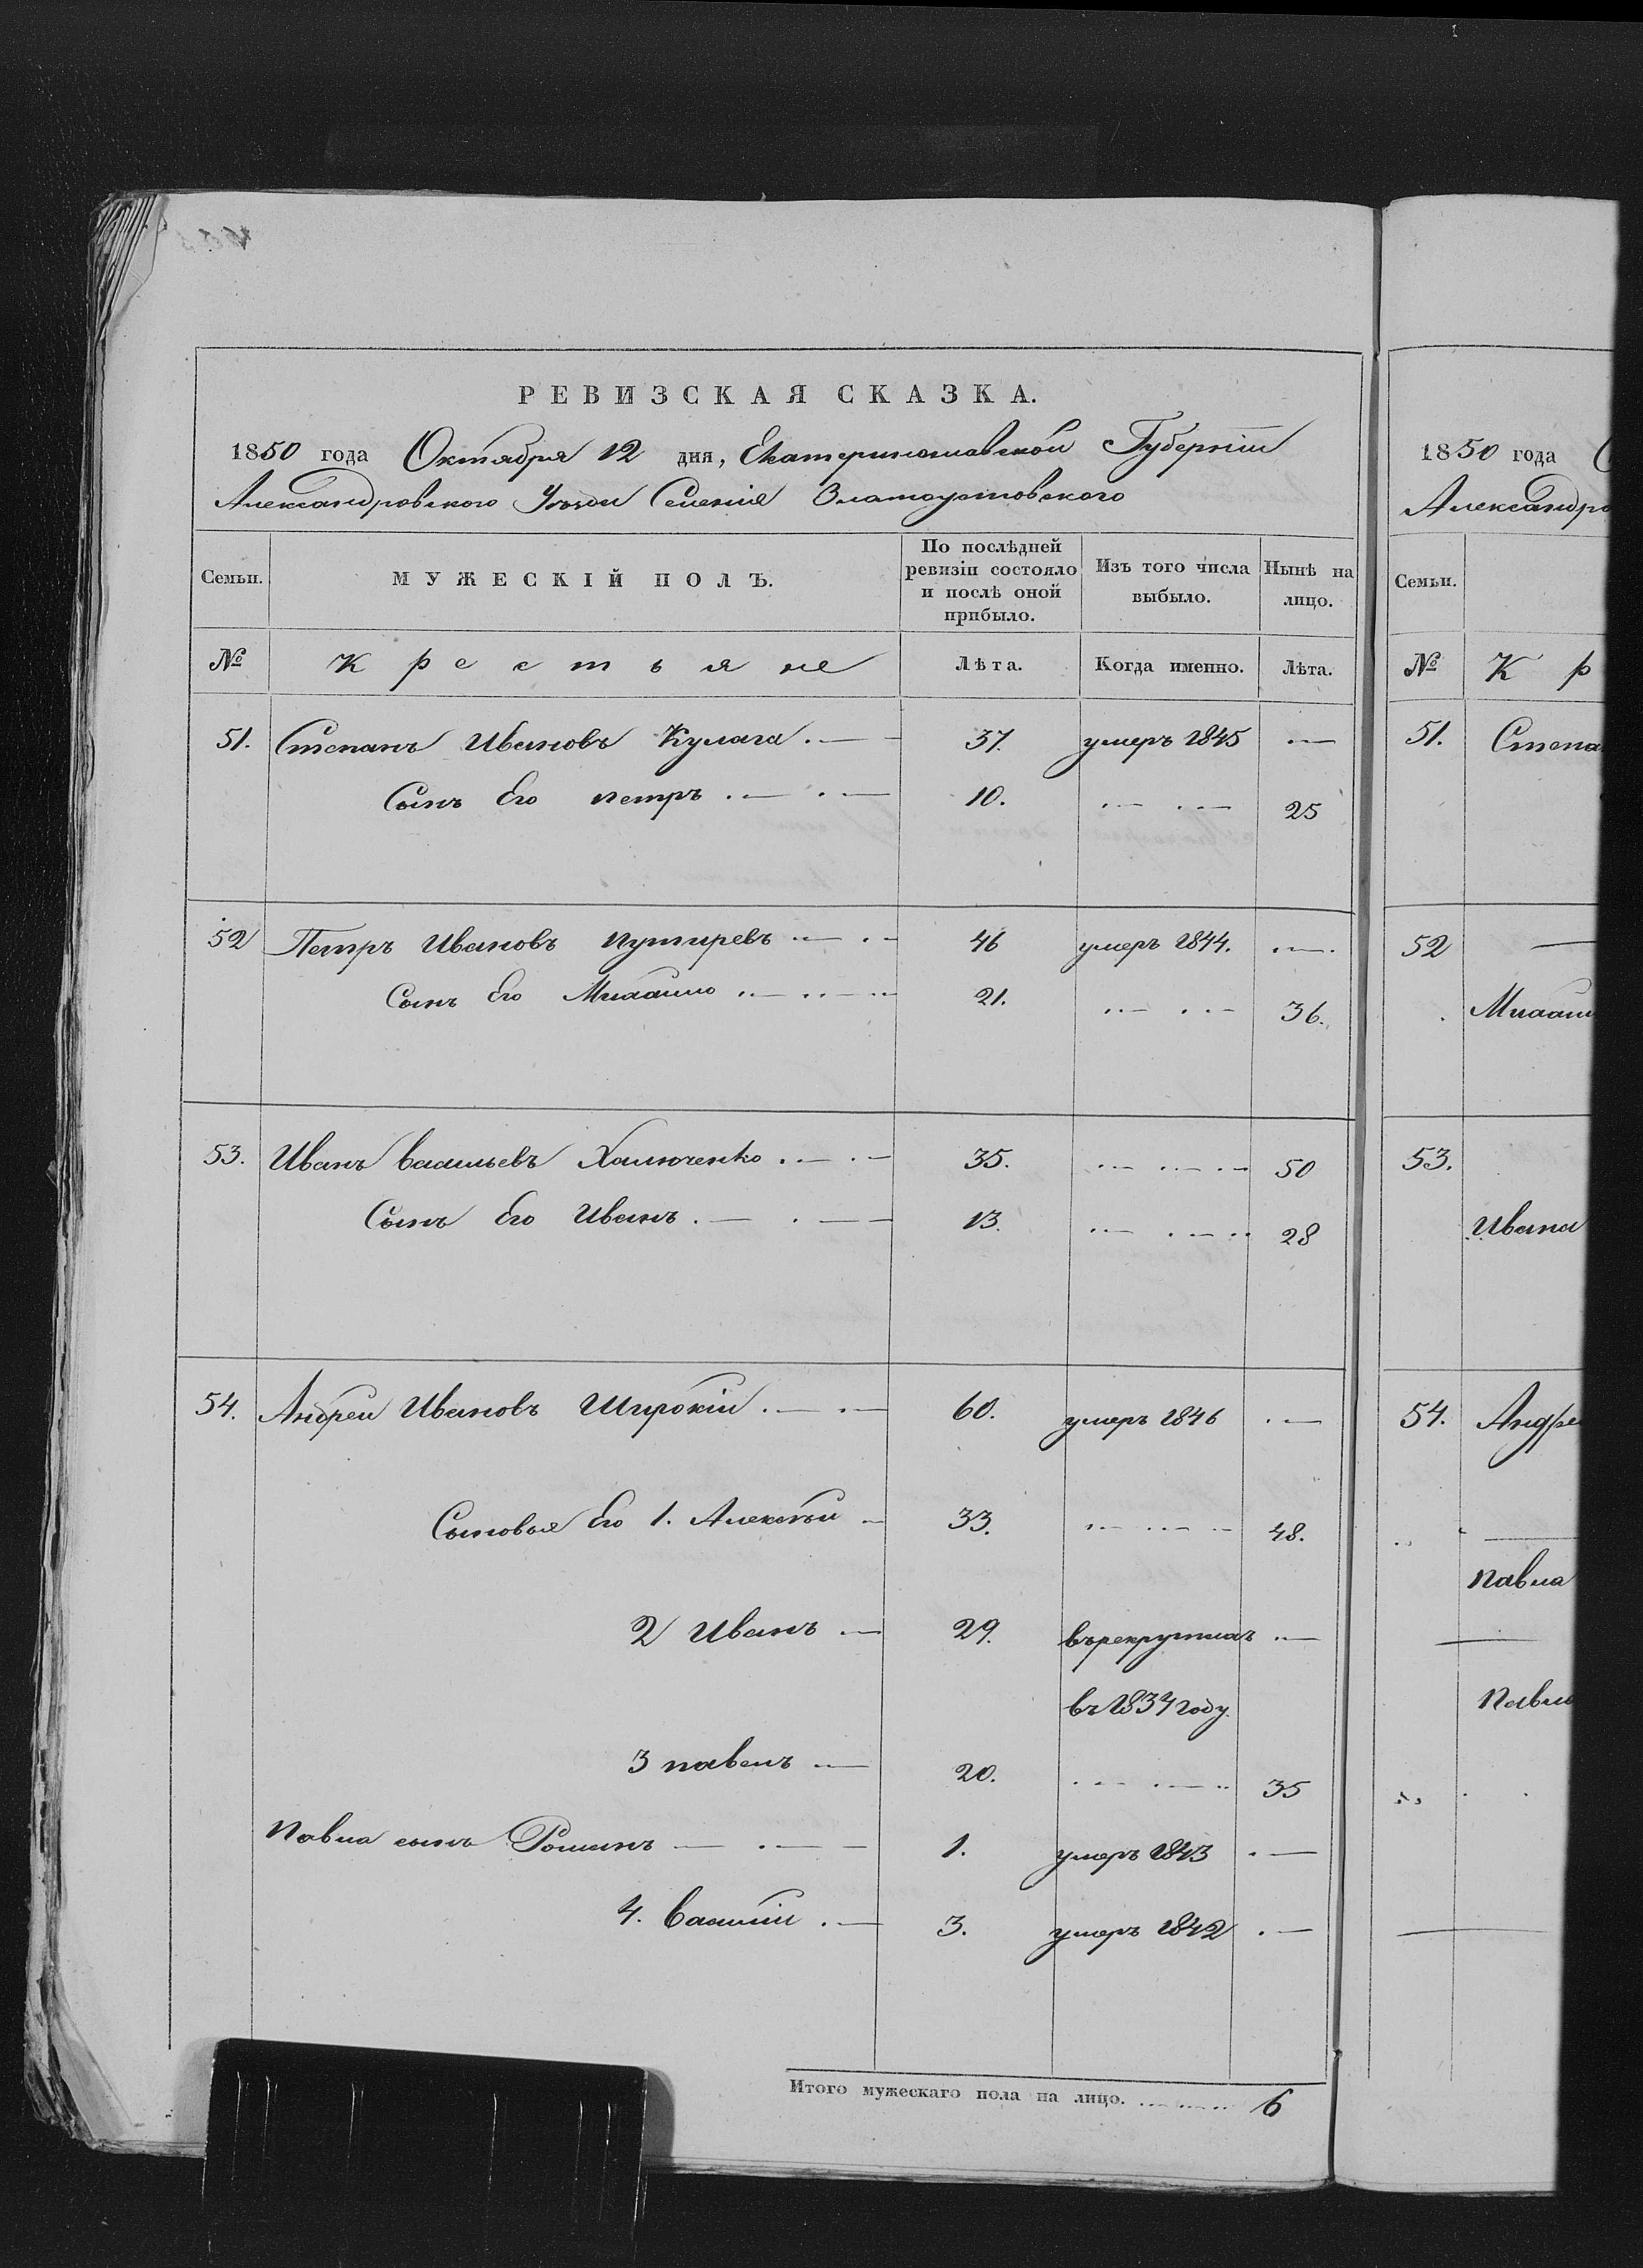 РЕВИЗСКАЯ СКАЗКА.
1850 года Октября 12 дня, Екатеринославской Губерніи
Александровского Уѣзда Селенія Златоустовского
Семьи.
МУЖЕСКІЙ ПОЛЪ.
По послѣдней
ревизіи состояло
и послѣ оной
прибыло.
Изъ того числа
выбыло.
Нынѣ на
лицо.
№ Крестьяне Лѣта. Когда именно. Лѣта.
51. Степанъ Ивановъ Кулага 37. умеръ 1845
Сынъ Его петръ 10. 25
52 Петръ Ивановъ путиревъ 46 умеръ 1844.
Сынъ Его Михаило 21. 36.
53. Иванъ васильевъ Халюченко 35. 50
Сынъ Его Иванъ 13. 28
54. Андреи Ивановъ Широкіи 60. умеръ 1846
Сыновья Его 1. Алексѣи 33. 48.
2 Иванъ 29. въ рекрутахъ
въ 1834 году.
3 павелъ 20. 35
павла сынъ Романъ 1. умеръ 1843
4. василіи 3. умеръ 1842
Итого мужескаго пола на лицо. 6
1850 года
Александро
Семьи.
№ К р
51. Степа
52
Михаи
53.
Ивана
54. Андре
павла
Павл